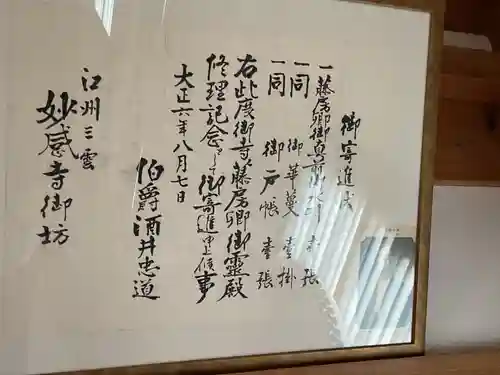 御寄進状
一藤房卿御真前水引 壹張
一同 御華蔓 壹掛
一同 御戸帳 壹張
右此度御寺藤房卿御霊殿
修理記念として御寄進申上候事
大正六年八月七日
伯爵酒井忠道
江州三雲
妙感寺御坊